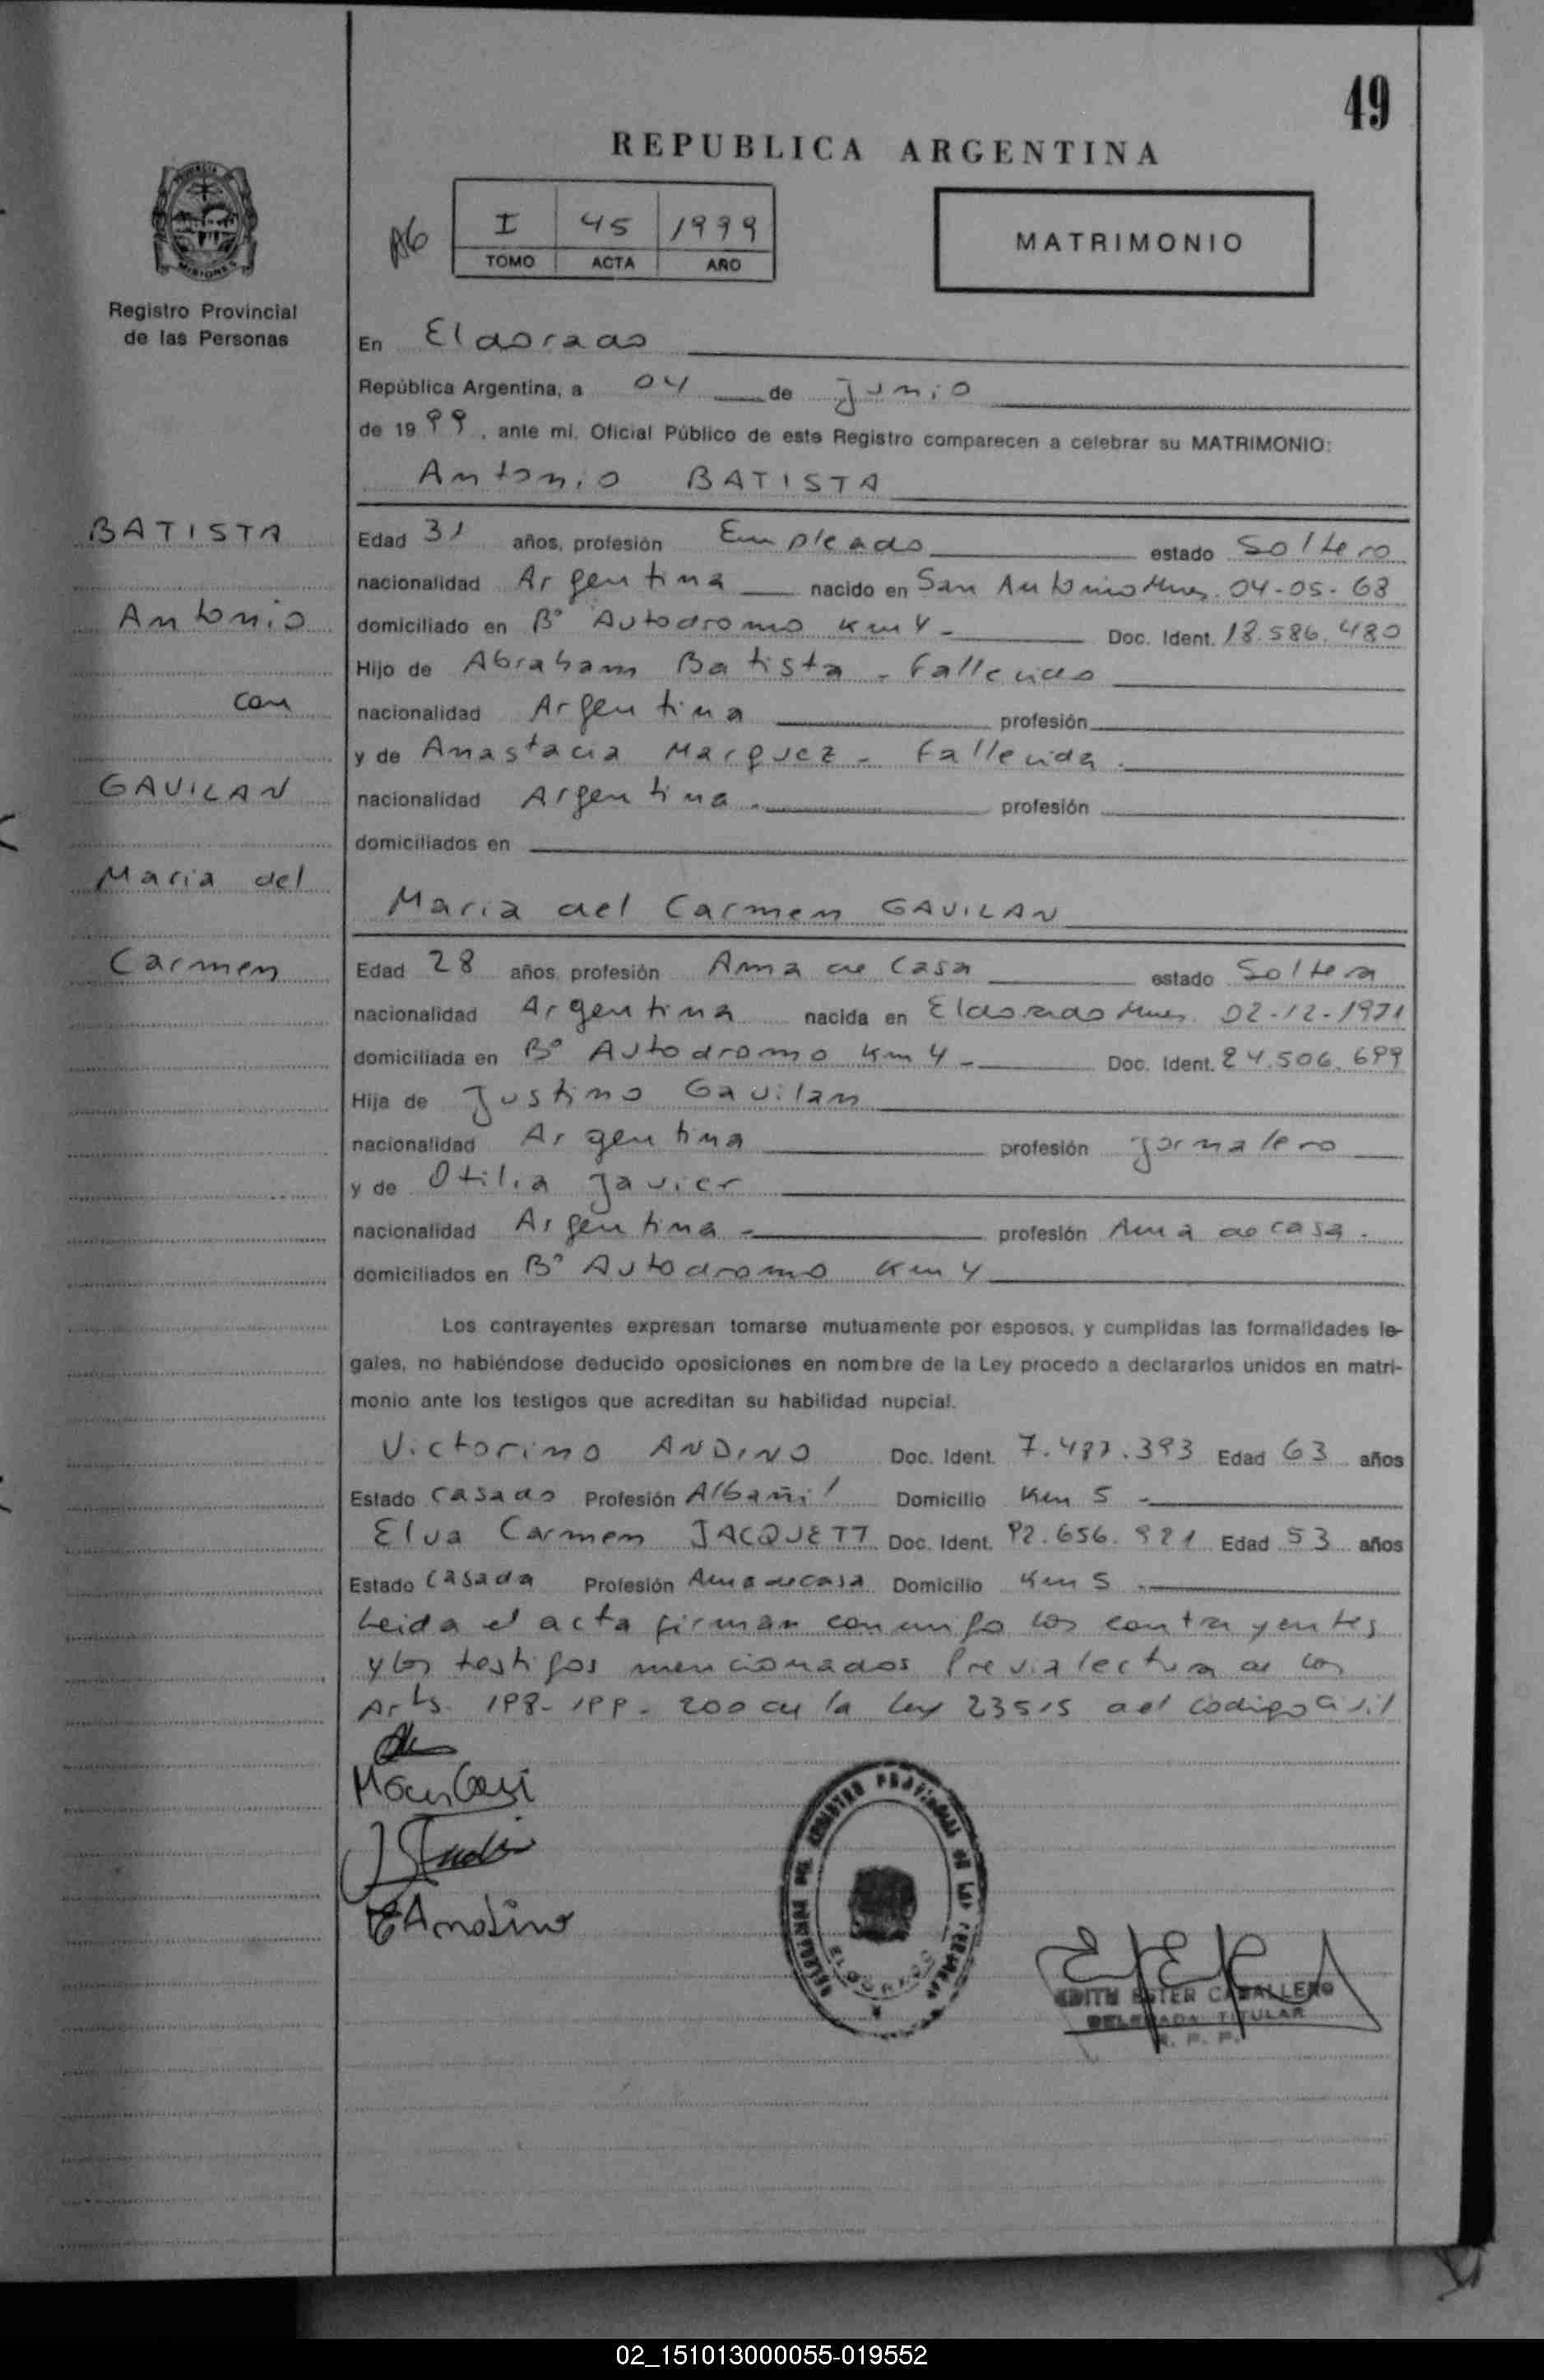 49
REPUBLICA ARGENTINA
I 45 1999
TOMO ACTA AÑO
MATRIMONIO
MISIONES
Registro Provincial
de las Personas
En Eldorado
República Argentina, a 04 de Junio
de 1999, ante mi, Oficial Público de este Registro comparecen a celebrar su MATRIMONIO:
Antonio BATISTA
BATISTA
Antonio
con
GAVILAN
Maria del
Carmen
Edad 31 años, profesión Empleado estado Soltero
nacionalidad Argentina nacido en San Antonio Mnes. 04-05-68
domiciliado en B° Autodromo Km 4 - Doc. Ident. 18.586.480
Hijo de Abraham Batista - Fallecido
nacionalidad Argentina profesión
y de Anastacia Marquez - Fallecida.
nacionalidad Argentina. profesión
domiciliados en
Maria del Carmen GAVILAN
Edad 28 años, profesión Ama de Casa estado Soltera
nacionalidad Argentina nacida en Eldorado Mnes. 02-12-1971
domiciliada en B° Autodromo Km 4 - Doc. Ident. 24.506.699
Hija de Justino Gavilan
nacionalidad Argentina profesión Jornalero
y de Otilia Javier
nacionalidad Argentina - profesión Ama de casa.
domiciliados en B° Autodromo Km 4
Los contrayentes expresan tomarse mutuamente por esposos, y cumplidas las formalidades le-
gales, no habiéndose deducido oposiciones en nombre de la Ley procedo a declararlos unidos en matri-
monio ante los testigos que acreditan su habilidad nupcial.
Victorino ANDINO Doc. Ident. Edad 63 años
Estado Casado Profesión Albañil Domicilio Km 5 -
Elva Carmen JACQUETT Doc. Ident. 92.656.921 Edad 53 años
Estado Casada Profesión Ama de casa Domicilio Km 5 -
Leida el acta firman conmigo los contrayentes
y los testigos mencionados Previa lectura de los
Arts. 198-199-200 de la Ley 23515 del Codigo Civil
EAndino
DELEGACION DEL REGISTRO PROVINCIAL DE LAS PERSONAS
ELDORADO
EDITH ESTER CABALLERO
DELEGADA TITULAR
R. P. P.
02_151013000055-019552